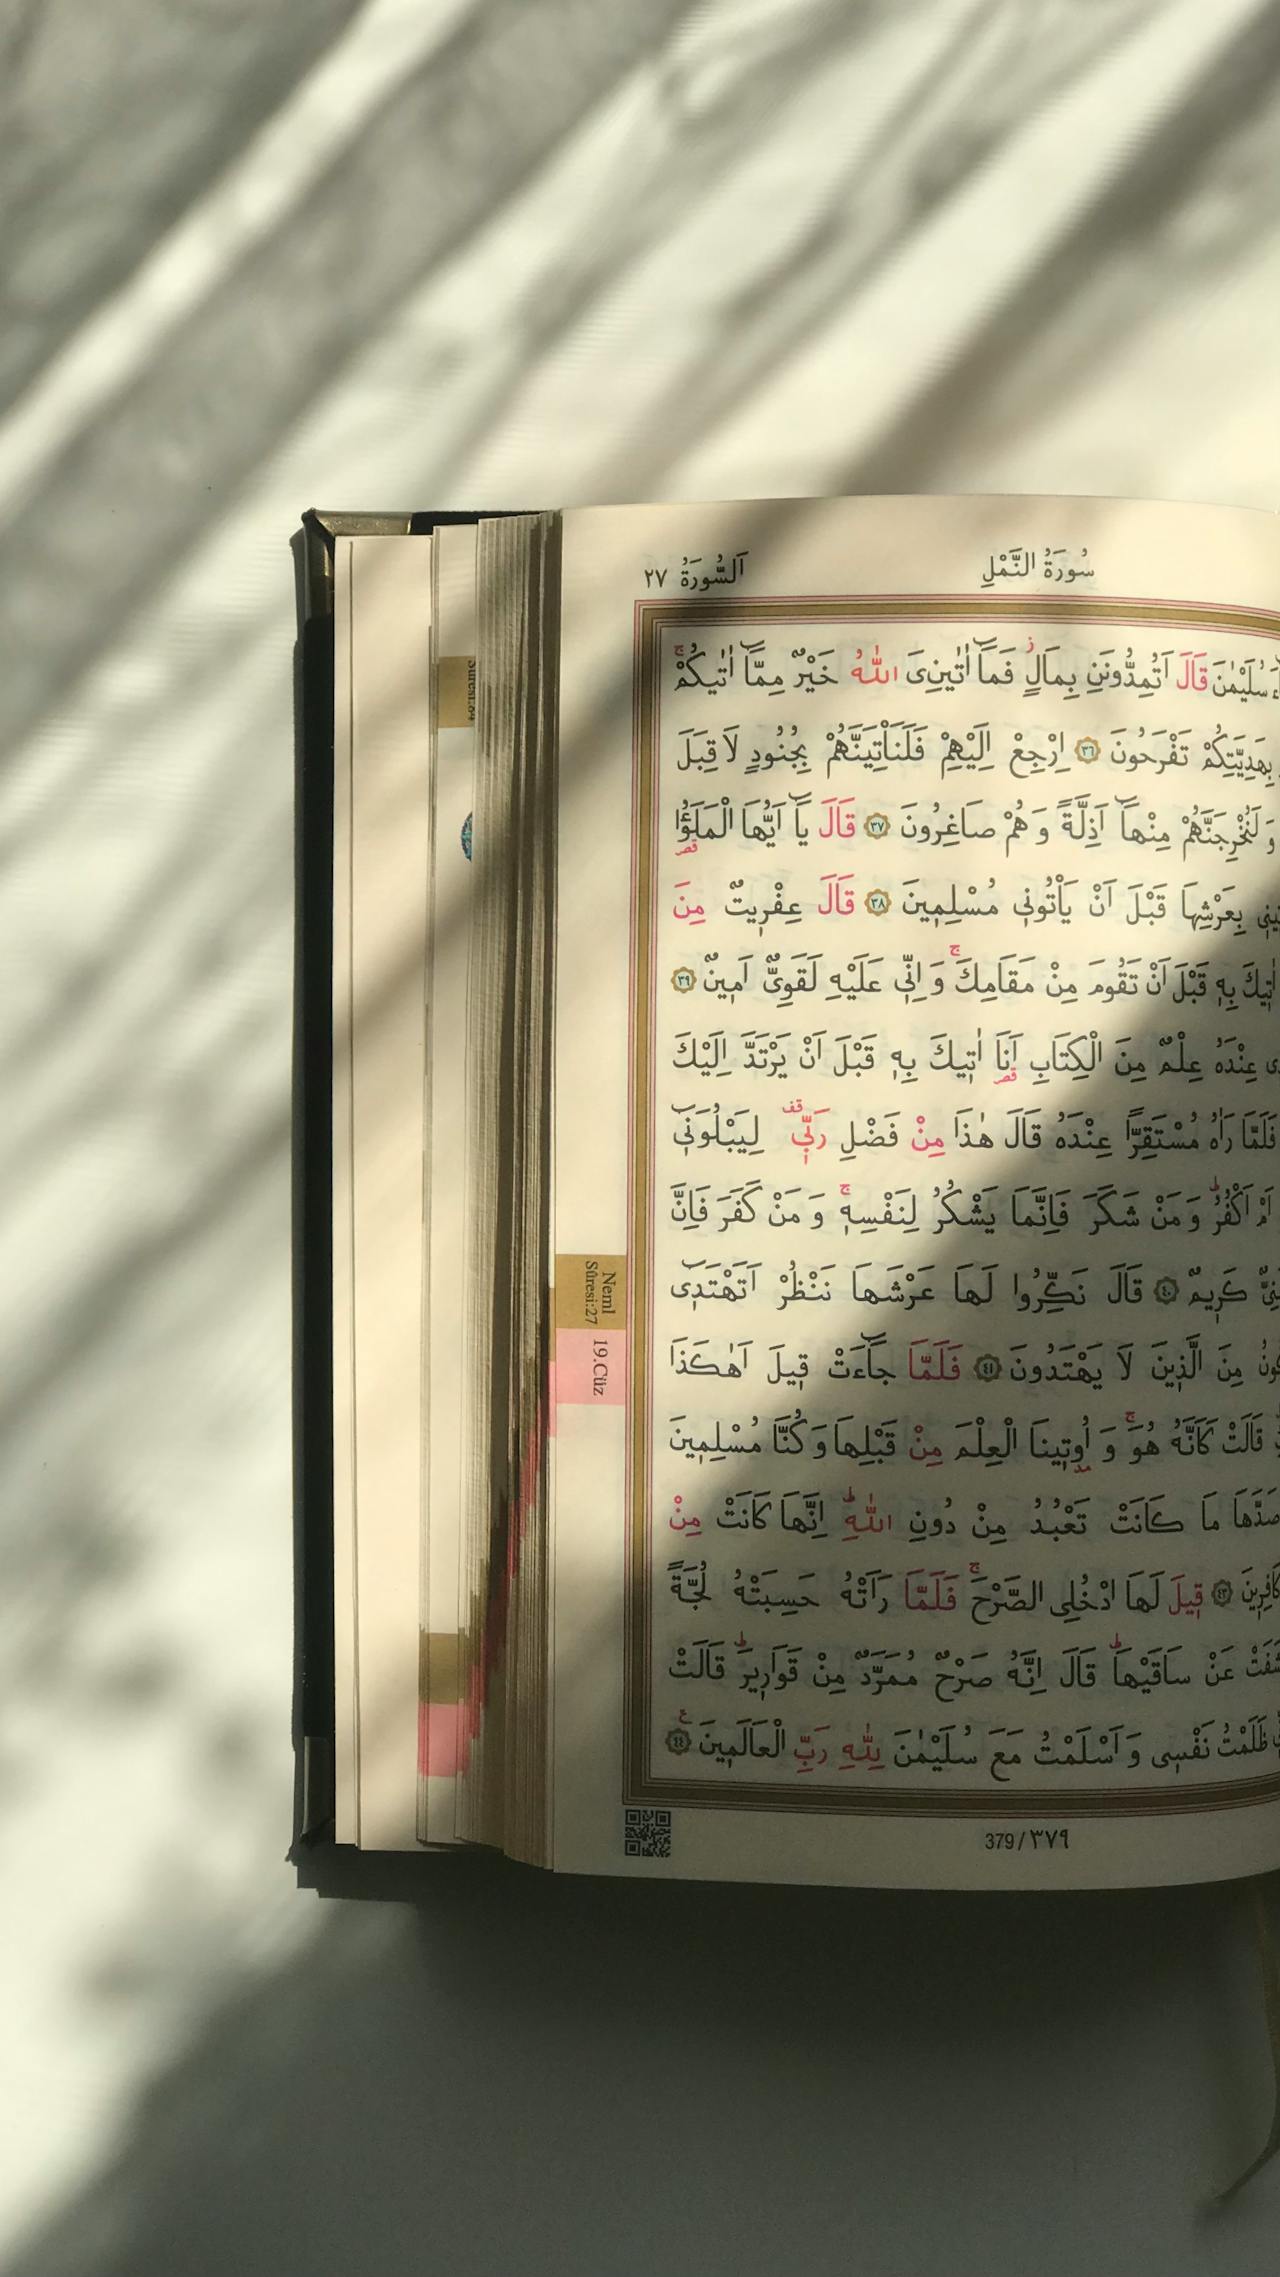 سُورَةُ النَّمْلِ
اَلسُّورَةُ ٢٧
سُلَيْمٰنَ قَالَ اَتُمِدُّونَنِ بِمَالٍ فَمَٓا اٰتٰينِىَ اللّٰهُ خَيْرٌ مِمَّٓا اٰتٰيكُمْۚ
بِهَدِيَّتِكُمْ تَفْرَحُونَ ٣٦ اِرْجِعْ اِلَيْهِمْ فَلَنَأْتِيَنَّهُمْ بِجُنُودٍ لَا قِبَلَ
وَلَنُخْرِجَنَّهُمْ مِنْهَٓا اَذِلَّةً وَهُمْ صَاغِرُونَ ٣٧ قَالَ يَٓا اَيُّهَا الْمَلَؤُ۬ا
بِعَرْشِهَا قَبْلَ اَنْ يَأْتُونٖى مُسْلِمٖينَ ٣٨ قَالَ عِفْرٖيتٌ مِنَ
اٰتٖيكَ بِهٖ قَبْلَ اَنْ تَقُومَ مِنْ مَقَامِكَۚ وَاِنّٖى عَلَيْهِ لَقَوِىٌّ اَمٖينٌ ٣٩
عِنْدَهُ عِلْمٌ مِنَ الْكِتَابِ اَنَا۬ اٰتٖيكَ بِهٖ قَبْلَ اَنْ يَرْتَدَّ اِلَيْكَ
فَلَمَّا رَاٰهُ مُسْتَقِرًّا عِنْدَهُ قَالَ هٰذَا مِنْ فَضْلِ رَبّٖى لِيَبْلُوَنٖٓى
اَمْ اَكْفُرُؕ وَمَنْ شَكَرَ فَاِنَّمَا يَشْكُرُ لِنَفْسِهٖۚ وَمَنْ كَفَرَ فَاِنَّ
كَرٖيمٌ ٤٠ قَالَ نَكِّرُوا لَهَا عَرْشَهَا نَنْظُرْ اَتَهْتَدٖٓى
مِنَ الَّذٖينَ لَا يَهْتَدُونَ ٤١ فَلَمَّا جَٓاءَتْ قٖيلَ اَهٰكَذَا
قَالَتْ كَاَنَّهُ هُوَۚ وَاُو۫تٖينَا الْعِلْمَ مِنْ قَبْلِهَا وَكُنَّا مُسْلِمٖينَ
صَدَّهَا مَا كَانَتْ تَعْبُدُ مِنْ دُونِ اللّٰهِؕ اِنَّهَا كَانَتْ مِنْ
كَافِرٖينَ ٤٣ قٖيلَ لَهَا ادْخُلِى الصَّرْحَۚ فَلَمَّا رَاَتْهُ حَسِبَتْهُ لُجَّةً
عَنْ سَاقَيْهَاؕ قَالَ اِنَّهُ صَرْحٌ مُمَرَّدٌ مِنْ قَوَارٖيرَؕ قَالَتْ
ظَلَمْتُ نَفْسٖى وَاَسْلَمْتُ مَعَ سُلَيْمٰنَ لِلّٰهِ رَبِّ الْعَالَمٖينَ ٤٤
Neml
Sûresi:27
19.Cüz
379/٣٧٩